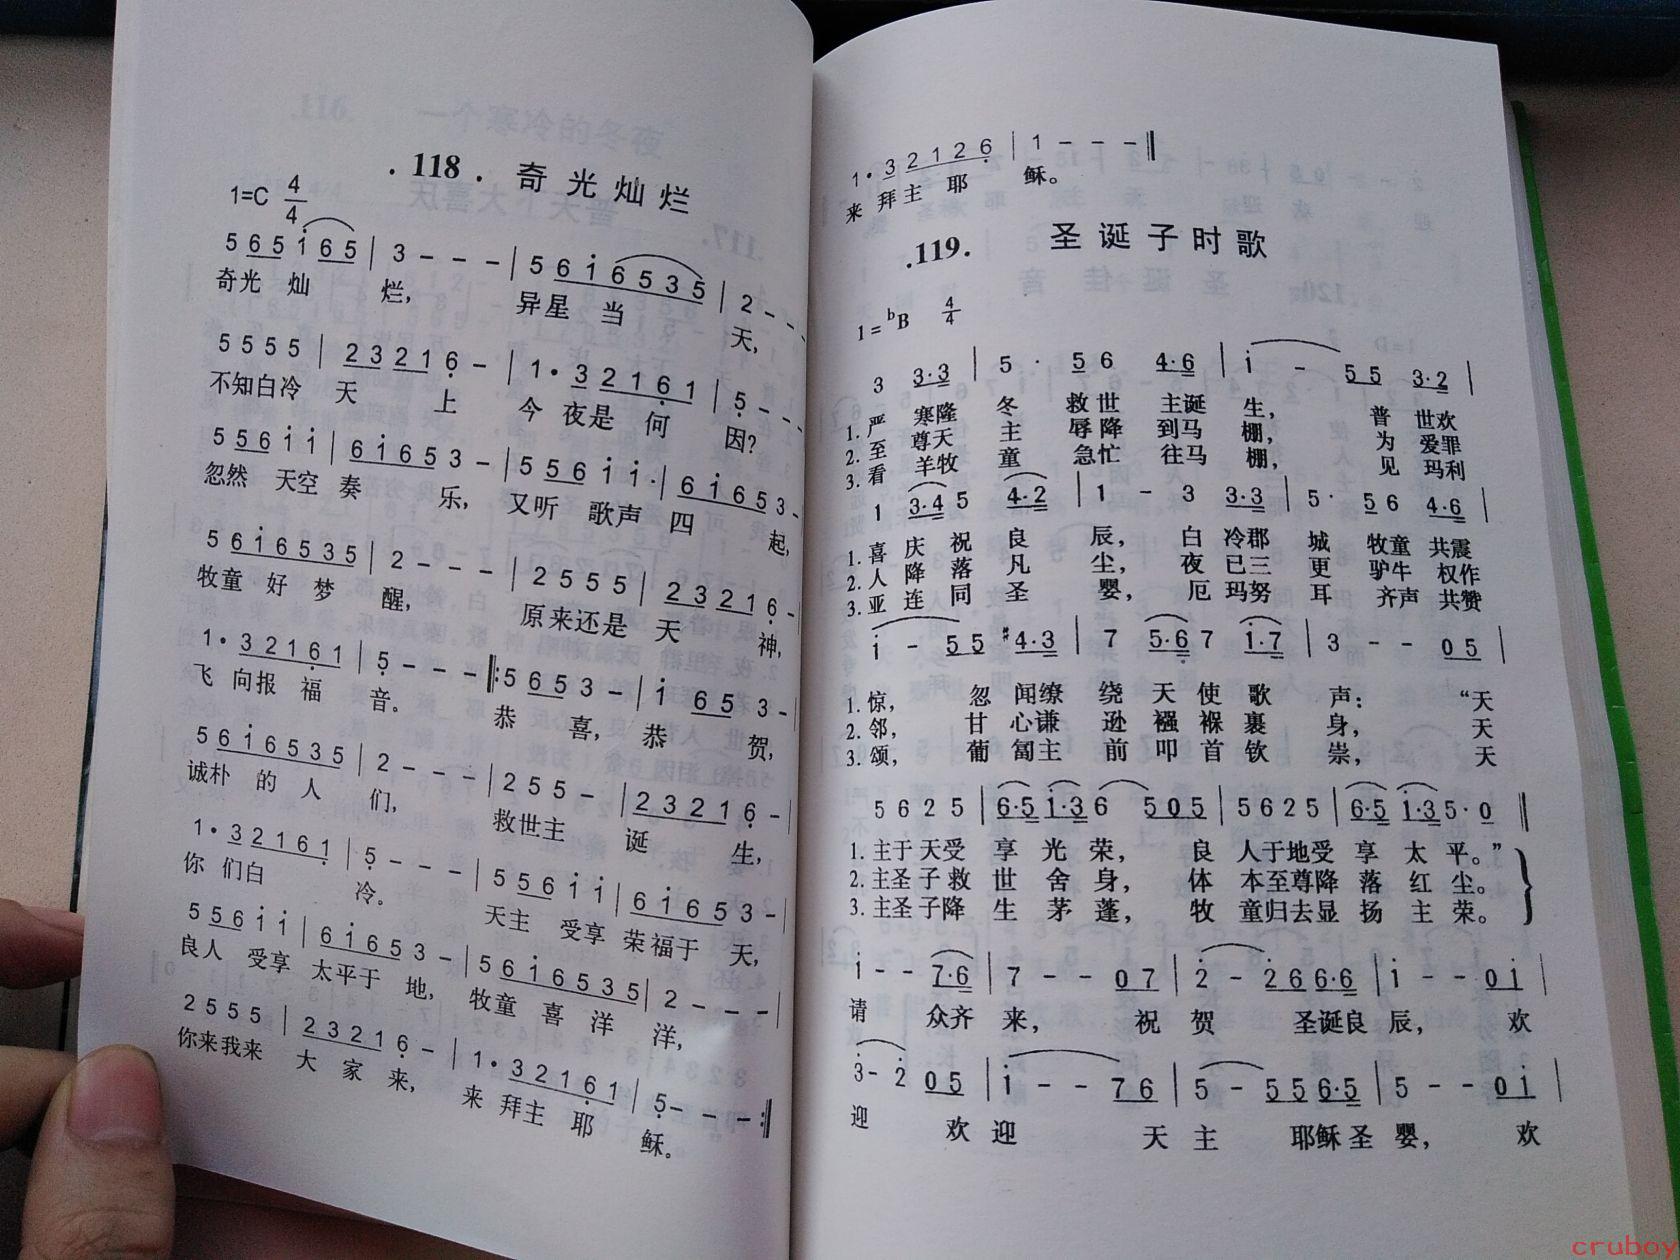 .118. 奇光灿烂
1=C 4/4
5 6 5 i 6 5 | 3 - - - | 5 6 i 6 5 3 5 | 2 - - -
奇光 灿 烂, 异星 当 天,
5 5 5 5 | 2 3 2 1 6 - | 1· 3 2 1 6 1 | 5 - - -
不知白冷 天 上 今 夜是 何 因?
5 5 6 i i | 6 i 6 5 3 - | 5 5 6 i i· | 6 i 6 5 3 -
忽然 天空 奏 乐, 又听 歌声 四 起,
5 6 i 6 5 3 5 | 2 - - - | 2 5 5 5 | 2 3 2 1 6 -
牧童 好 梦 醒, 原来还是 天 神,
1· 3 2 1 6 1 | 5 - - - ‖: 5 6 5 3 - | i 6 5 3 - |
飞 向报 福 音。 恭 喜, 恭 贺,
5 6 i 6 5 3 5 | 2 - - - | 2 5 5 - | 2 3 2 1 6 - |
诚朴 的 人 们, 救世主 诞 生,
1· 3 2 1 6 1 | 5 - - - | 5 5 6 i i | 6 i 6 5 3 - |
你 们白 冷。 天主 受享 荣福于 天,
5 5 6 i i | 6 i 6 5 3 - | 5 6 i 6 5 3 5 | 2 - - - |
良人 受享 太平于 地, 牧童 喜 洋 洋,
2 5 5 5 | 2 3 2 1 6 - | 1· 3 2 1 6 1 | 5 - - - :‖
你来我来 大 家 来, 来 拜主 耶 稣。
1· 3 2 1 2 6 | 1 - - - ‖
来 拜主 耶 稣。
.119. 圣诞子时歌
1=bB 4/4
3 3·3 | 5· 5 6 4·6 | i - 5 5 3·2 |
1. 严 寒隆 冬 救世 主诞 生, 普 世欢
2. 至 尊天 主 辱降 到马 棚, 为 爱罪
3. 看 羊牧 童 急忙 往马 棚, 见 玛利
1 3·4 5 4·2 | 1 - 3 3·3 | 5· 5 6 4·6 |
1. 喜 庆 祝 良 辰, 白 冷郡 城 牧童 共震
2. 人 降 落 凡 尘, 夜 已三 更 驴牛 权作
3. 亚 连 同 圣 婴, 厄 玛努 耳 齐声 共赞
i - 5 5 #4·3 | 7 5·6 7 i·7 | 3 - - 0 5 |
1. 惊, 忽 闻缭 绕 天 使 歌 声: “天
2. 邻, 甘 心谦 逊 襁 褓 裹 身, 天
3. 颂, 葡 匐主 前 叩 首 钦 崇, 天
5 6 2 5 | 6·5 i·3 6 5 0 5 | 5 6 2 5 | 6·5 i·3 5· 0 ‖
1. 主于 天受 享 光 荣, 良 人于地受 享 太 平。”
2. 主圣 子救 世 舍 身, 体 本至尊降 落 红 尘。
3. 主圣 子降 生 茅 蓬, 牧 童归去显 扬 主 荣。
i - - 7·6 | 7 - - 0 7 | 2 - 2 6 6·6 | i - - 0 i |
请 众齐 来, 祝 贺 圣诞良 辰, 欢
3 - 2 0 5 | i - - 7 6 | 5 - 5 5 6·5 | 5 - - 0 i |
迎 欢 迎 天 主 耶稣 圣 婴, 欢
cruboy